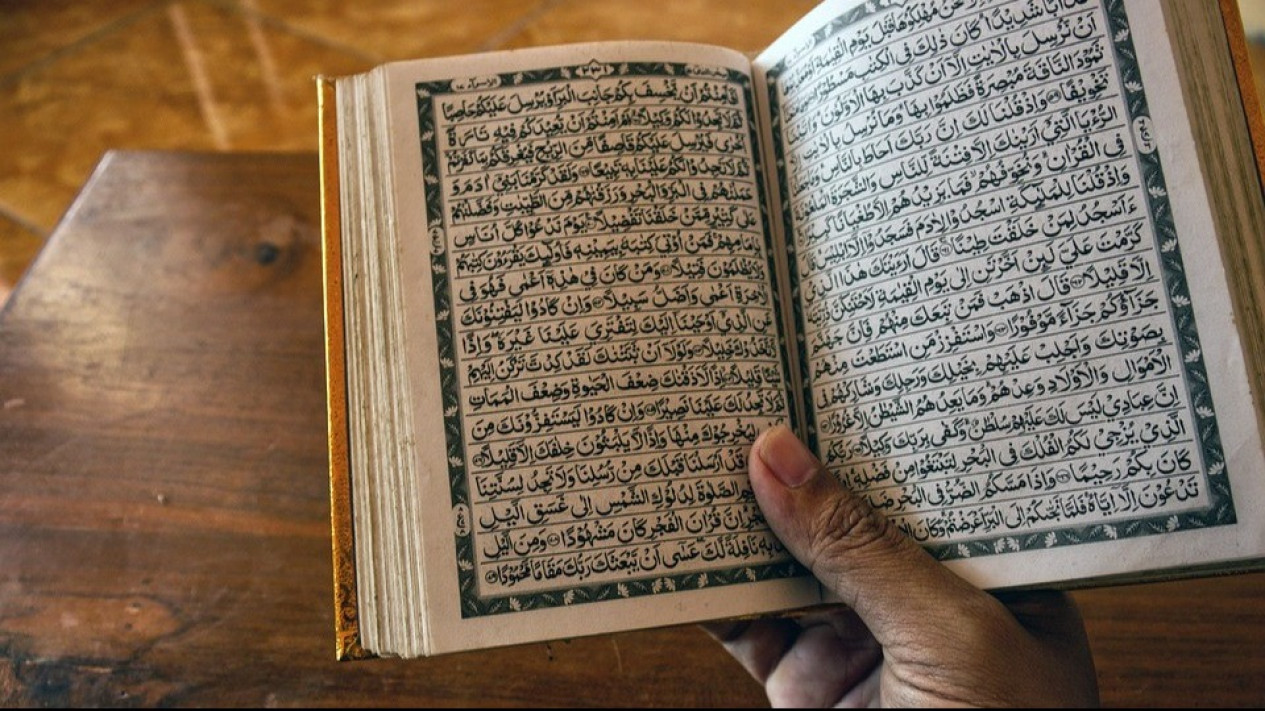 نَحْنُ مُهْلِكُوْهَا قَبْلَ يَوْمِ الْقِيٰمَةِ
عَذَابًا شَدِيْدًا ۗ كَانَ ذٰلِكَ فِى الْكِتٰبِ مَسْطُوْرًا
اَنْ نُّرْسِلَ بِالْاٰيٰتِ اِلَّآ اَنْ كَذَّبَ بِهَا الْاَوَّلُوْنَ ۗ وَاٰتَيْنَا
ثَمُوْدَ النَّاقَةَ مُبْصِرَةً فَظَلَمُوْا بِهَا ۗ وَمَا نُرْسِلُ بِالْاٰيٰتِ اِلَّا
تَخْوِيْفًا وَاِذْ قُلْنَا لَكَ اِنَّ رَبَّكَ اَحَاطَ بِالنَّاسِ ۗ وَمَا جَعَلْنَا
الرُّءْيَا الَّتِيْٓ اَرَيْنٰكَ اِلَّا فِتْنَةً لِّلنَّاسِ وَالشَّجَرَةَ الْمَلْعُوْنَةَ
فِى الْقُرْاٰنِ ۗ وَنُخَوِّفُهُمْ فَمَا يَزِيْدُهُمْ اِلَّا طُغْيَانًا كَبِيْرًا
وَاِذْ قُلْنَا لِلْمَلٰٓئِكَةِ اسْجُدُوْا لِاٰدَمَ فَسَجَدُوْٓا اِلَّآ اِبْلِيْسَ قَالَ
ءَاَسْجُدُ لِمَنْ خَلَقْتَ طِيْنًا قَالَ اَرَءَيْتَكَ هٰذَا الَّذِيْ
كَرَّمْتَ عَلَيَّ لَئِنْ اَخَّرْتَنِ اِلٰى يَوْمِ الْقِيٰمَةِ لَاَحْتَنِكَنَّ ذُرِّيَّتَهٗٓ
اِلَّا قَلِيْلًا قَالَ اذْهَبْ فَمَنْ تَبِعَكَ مِنْهُمْ فَاِنَّ جَهَنَّمَ
جَزَآؤُكُمْ جَزَآءً مَّوْفُوْرًا وَاسْتَفْزِزْ مَنِ اسْتَطَعْتَ مِنْهُمْ
بِصَوْتِكَ وَاَجْلِبْ عَلَيْهِمْ بِخَيْلِكَ وَرَجِلِكَ وَشَارِكْهُمْ فِى
الْاَمْوَالِ وَالْاَوْلَادِ وَعِدْهُمْ ۗ وَمَا يَعِدُهُمُ الشَّيْطٰنُ اِلَّا غُرُوْرًا
اِنَّ عِبَادِيْ لَيْسَ لَكَ عَلَيْهِمْ سُلْطٰنٌ ۗ وَكَفٰى بِرَبِّكَ وَكِيْلًا رَبُّكُمُ
الَّذِيْ يُزْجِيْ لَكُمُ الْفُلْكَ فِى الْبَحْرِ لِتَبْتَغُوْا مِنْ فَضْلِهٖ
كَانَ بِكُمْ رَحِيْمًا وَاِذَا مَسَّكُمُ الضُّرُّ فِى الْبَحْرِ
تَدْعُوْنَ اِلَّآ اِيَّاهُ فَلَمَّا نَجّٰىكُمْ اِلَى الْبَرِّ اَعْرَضْتُمْ ۗ وَكَانَ
اَفَاَمِنْتُمْ اَنْ يَّخْسِفَ بِكُمْ جَانِبَ الْبَرِّ اَوْ يُرْسِلَ عَلَيْكُمْ حَاصِبًا
ثُمَّ لَا تَجِدُوْا لَكُمْ وَكِيْلًا اَمْ اَمِنْتُمْ اَنْ يُّعِيْدَكُمْ فِيْهِ تَارَةً
اُخْرٰى فَيُرْسِلَ عَلَيْكُمْ قَاصِفًا مِّنَ الرِّيْحِ فَيُغْرِقَكُمْ بِمَا كَفَرْتُمْ
ثُمَّ لَا تَجِدُوْا لَكُمْ عَلَيْنَا بِهٖ تَبِيْعًا وَلَقَدْ كَرَّمْنَا بَنِيْٓ اٰدَمَ وَ
حَمَلْنٰهُمْ فِى الْبَرِّ وَالْبَحْرِ وَرَزَقْنٰهُمْ مِّنَ الطَّيِّبٰتِ وَفَضَّلْنٰهُمْ
عَلٰى كَثِيْرٍ مِّمَّنْ خَلَقْنَا تَفْضِيْلًا يَوْمَ نَدْعُوْا كُلَّ اُنَاسٍۢ
بِاِمَامِهِمْ فَمَنْ اُوْتِيَ كِتٰبَهٗ بِيَمِيْنِهٖ فَاُولٰٓئِكَ يَقْرَءُوْنَ كِتٰبَهُمْ
وَلَا يُظْلَمُوْنَ فَتِيْلًا وَمَنْ كَانَ فِيْ هٰذِهٖٓ اَعْمٰى فَهُوَ فِى
الْاٰخِرَةِ اَعْمٰى وَاَضَلُّ سَبِيْلًا وَاِنْ كَادُوْا لَيَفْتِنُوْنَكَ
عَنِ الَّذِيْٓ اَوْحَيْنَآ اِلَيْكَ لِتَفْتَرِيَ عَلَيْنَا غَيْرَهٗ وَاِذًا
لَّاتَّخَذُوْكَ خَلِيْلًا وَلَوْلَآ اَنْ ثَبَّتْنٰكَ لَقَدْ كِدْتَّ تَرْكَنُ اِلَيْهِمْ
شَيْئًا قَلِيْلًا اِذًا لَّاَذَقْنٰكَ ضِعْفَ الْحَيٰوةِ وَضِعْفَ الْمَمَاتِ
ثُمَّ لَا تَجِدُ لَكَ عَلَيْنَا نَصِيْرًا وَاِنْ كَادُوْا لَيَسْتَفِزُّوْنَكَ مِنَ
لِيُخْرِجُوْكَ مِنْهَا وَاِذًا لَّا يَلْبَثُوْنَ خِلٰفَكَ اِلَّا قَلِيْلًا
قَدْ اَرْسَلْنَا قَبْلَكَ مِنْ رُّسُلِنَا وَلَا تَجِدُ لِسُنَّتِنَا
الصَّلٰوةَ لِدُلُوْكِ الشَّمْسِ اِلٰى غَسَقِ الَّيْلِ
اِنَّ قُرْاٰنَ الْفَجْرِ كَانَ مَشْهُوْدًا وَمِنَ الَّيْلِ
بِهٖ نَافِلَةً لَّكَ عَسٰٓى اَنْ يَّبْعَثَكَ رَبُّكَ مَقَامًا مَّحْمُوْدًا